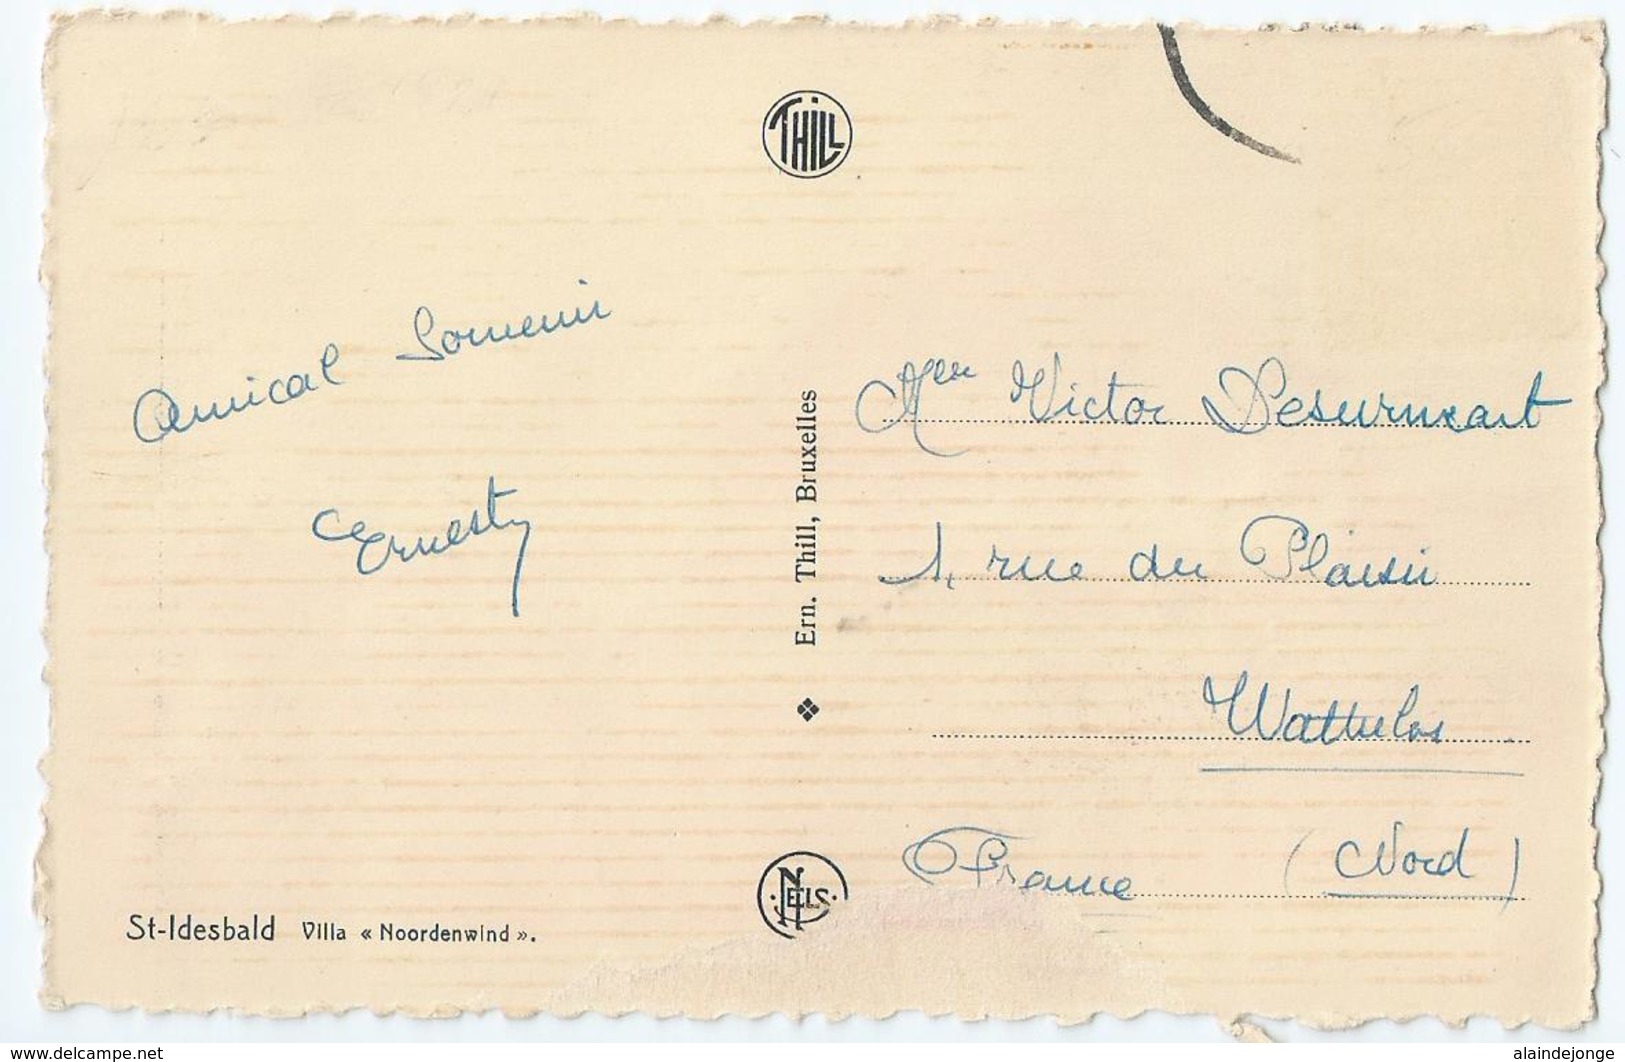 THILL
Amical Souvenir
Ernest
Ern. Thill, Bruxelles
NELS
St-Idesbald Villa « Noordenwind ».
Victor Desurmont
1, rue du Plaisir
Wattrelos
France (Nord)
www.delcampe.net
alaindejonge